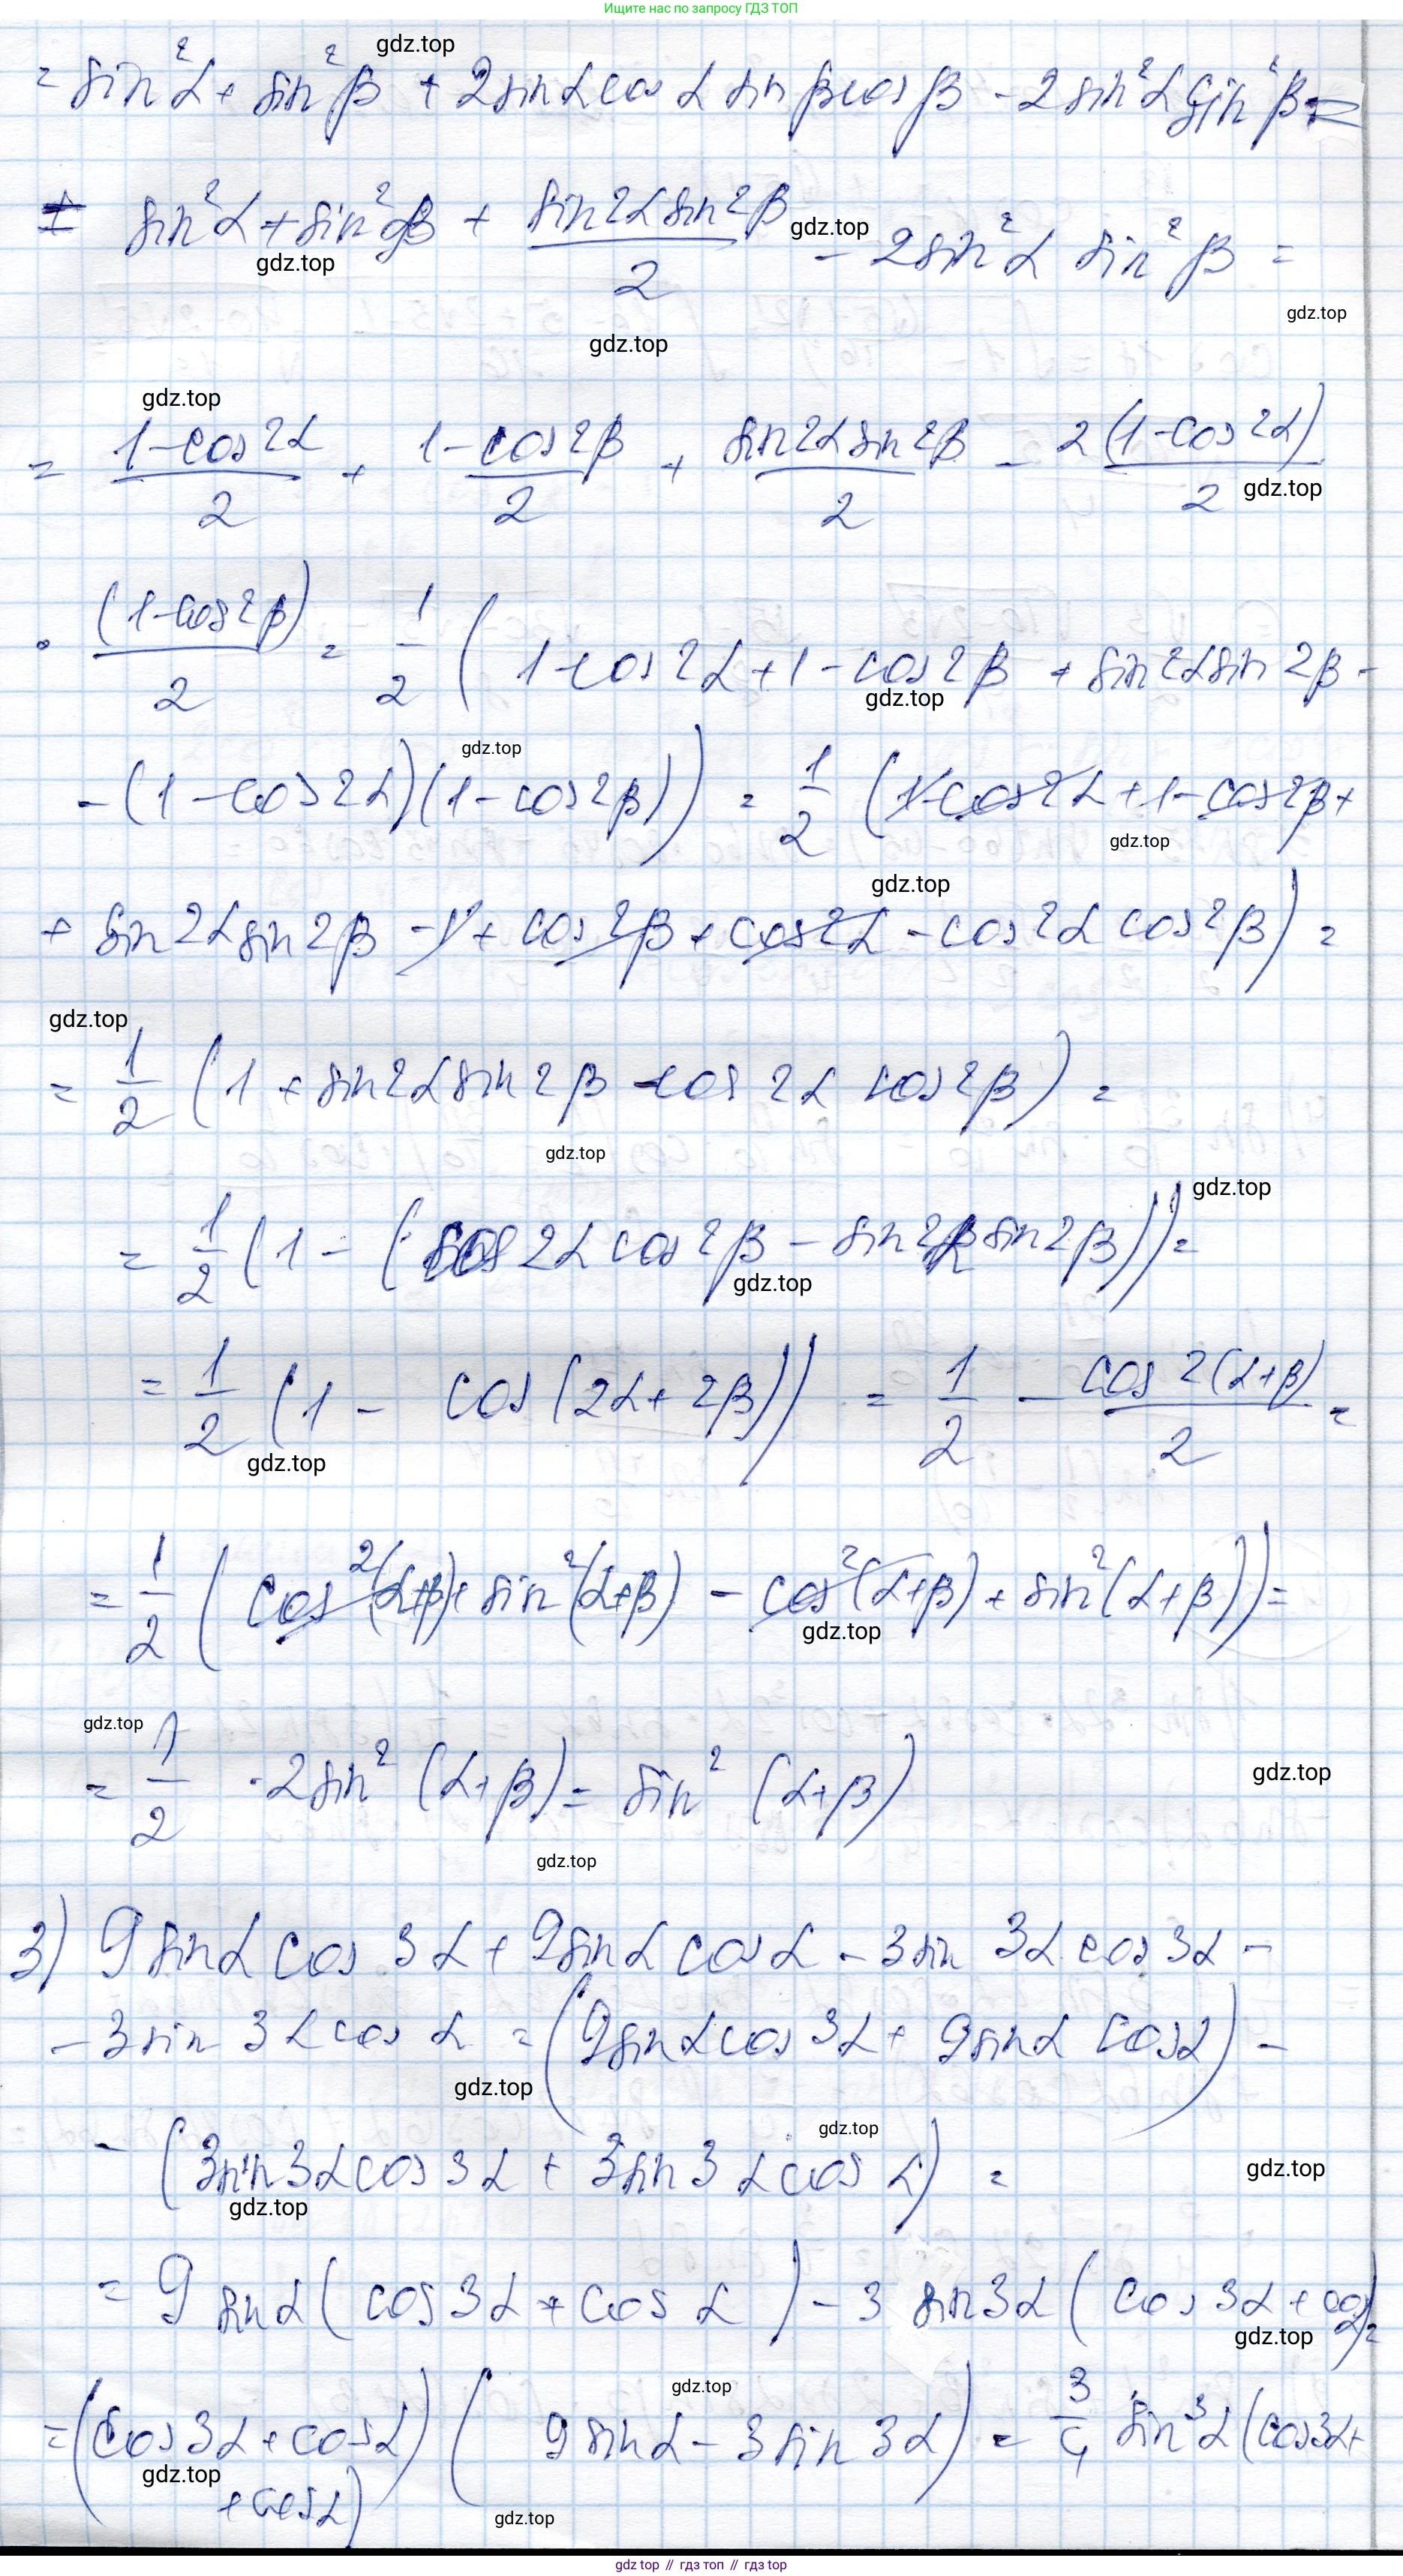 Ищите нас по запросу ГДЗ ТОП
gdz.top
= sin²α + sin²β + 2sinα cosα sinβ cosβ - 2sin²α sin²β =
= sin²α + sin²β + \frac{sin2α sin2β}{2} - 2sin²α sin²β =
gdz.top
gdz.top
gdz.top
gdz.top
gdz.top
= \frac{1-cos2α}{2} + \frac{1-cos2β}{2} + \frac{sin2α sin2β}{2} - \frac{2(1-cos2α)}{2}
gdz.top
· \frac{(1-cos2β)}{2} = \frac{1}{2} ( 1-cos2α + 1 - cos2β + sin2α sin2β -
gdz.top
gdz.top
- (1-cos2α)(1-cos2β)) = \frac{1}{2} (1-cos2α + 1 - cos2β +
gdz.top
gdz.top
+ sin2α sin2β - 1 + cos2β + cos2α - cos2α cos2β) =
gdz.top
= \frac{1}{2} (1 + sin2α sin2β - cos2α cos2β) =
gdz.top
gdz.top
= \frac{1}{2} (1 - (cos2α cos2β - sin2α sin2β)) =
gdz.top
= \frac{1}{2} (1 - cos(2α + 2β)) = \frac{1}{2} - \frac{cos2(α+β)}{2} =
gdz.top
= \frac{1}{2} (cos²(α+β) + sin²(α+β) - cos²(α+β) + sin²(α+β)) =
gdz.top
gdz.top
= \frac{1}{2} · 2sin²(α+β) = sin²(α+β)
gdz.top
gdz.top
3) 9sinα cos3α + 9sinα cosα - 3sin3α cos3α -
- 3sin3α cosα = (9sinα cos3α + 9sinα cosα) -
gdz.top
gdz.top
- (3sin3α cos3α + 3sin3α cosα) =
gdz.top
gdz.top
= 9sinα (cos3α + cosα) - 3sin3α (cos3α + cosα) =
gdz.top
gdz.top
= (cos3α + cosα) (9sinα - 3sin3α) = \frac{3}{4} sin³α (cos3α +
gdz.top
+ cosα)
gdz.top
gdz top // гдз топ // gdz top